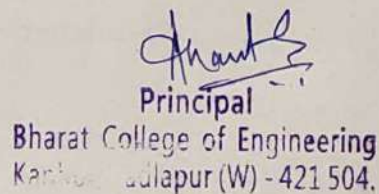 Principal
Bharat College of Engineering
(W) - 421 504.